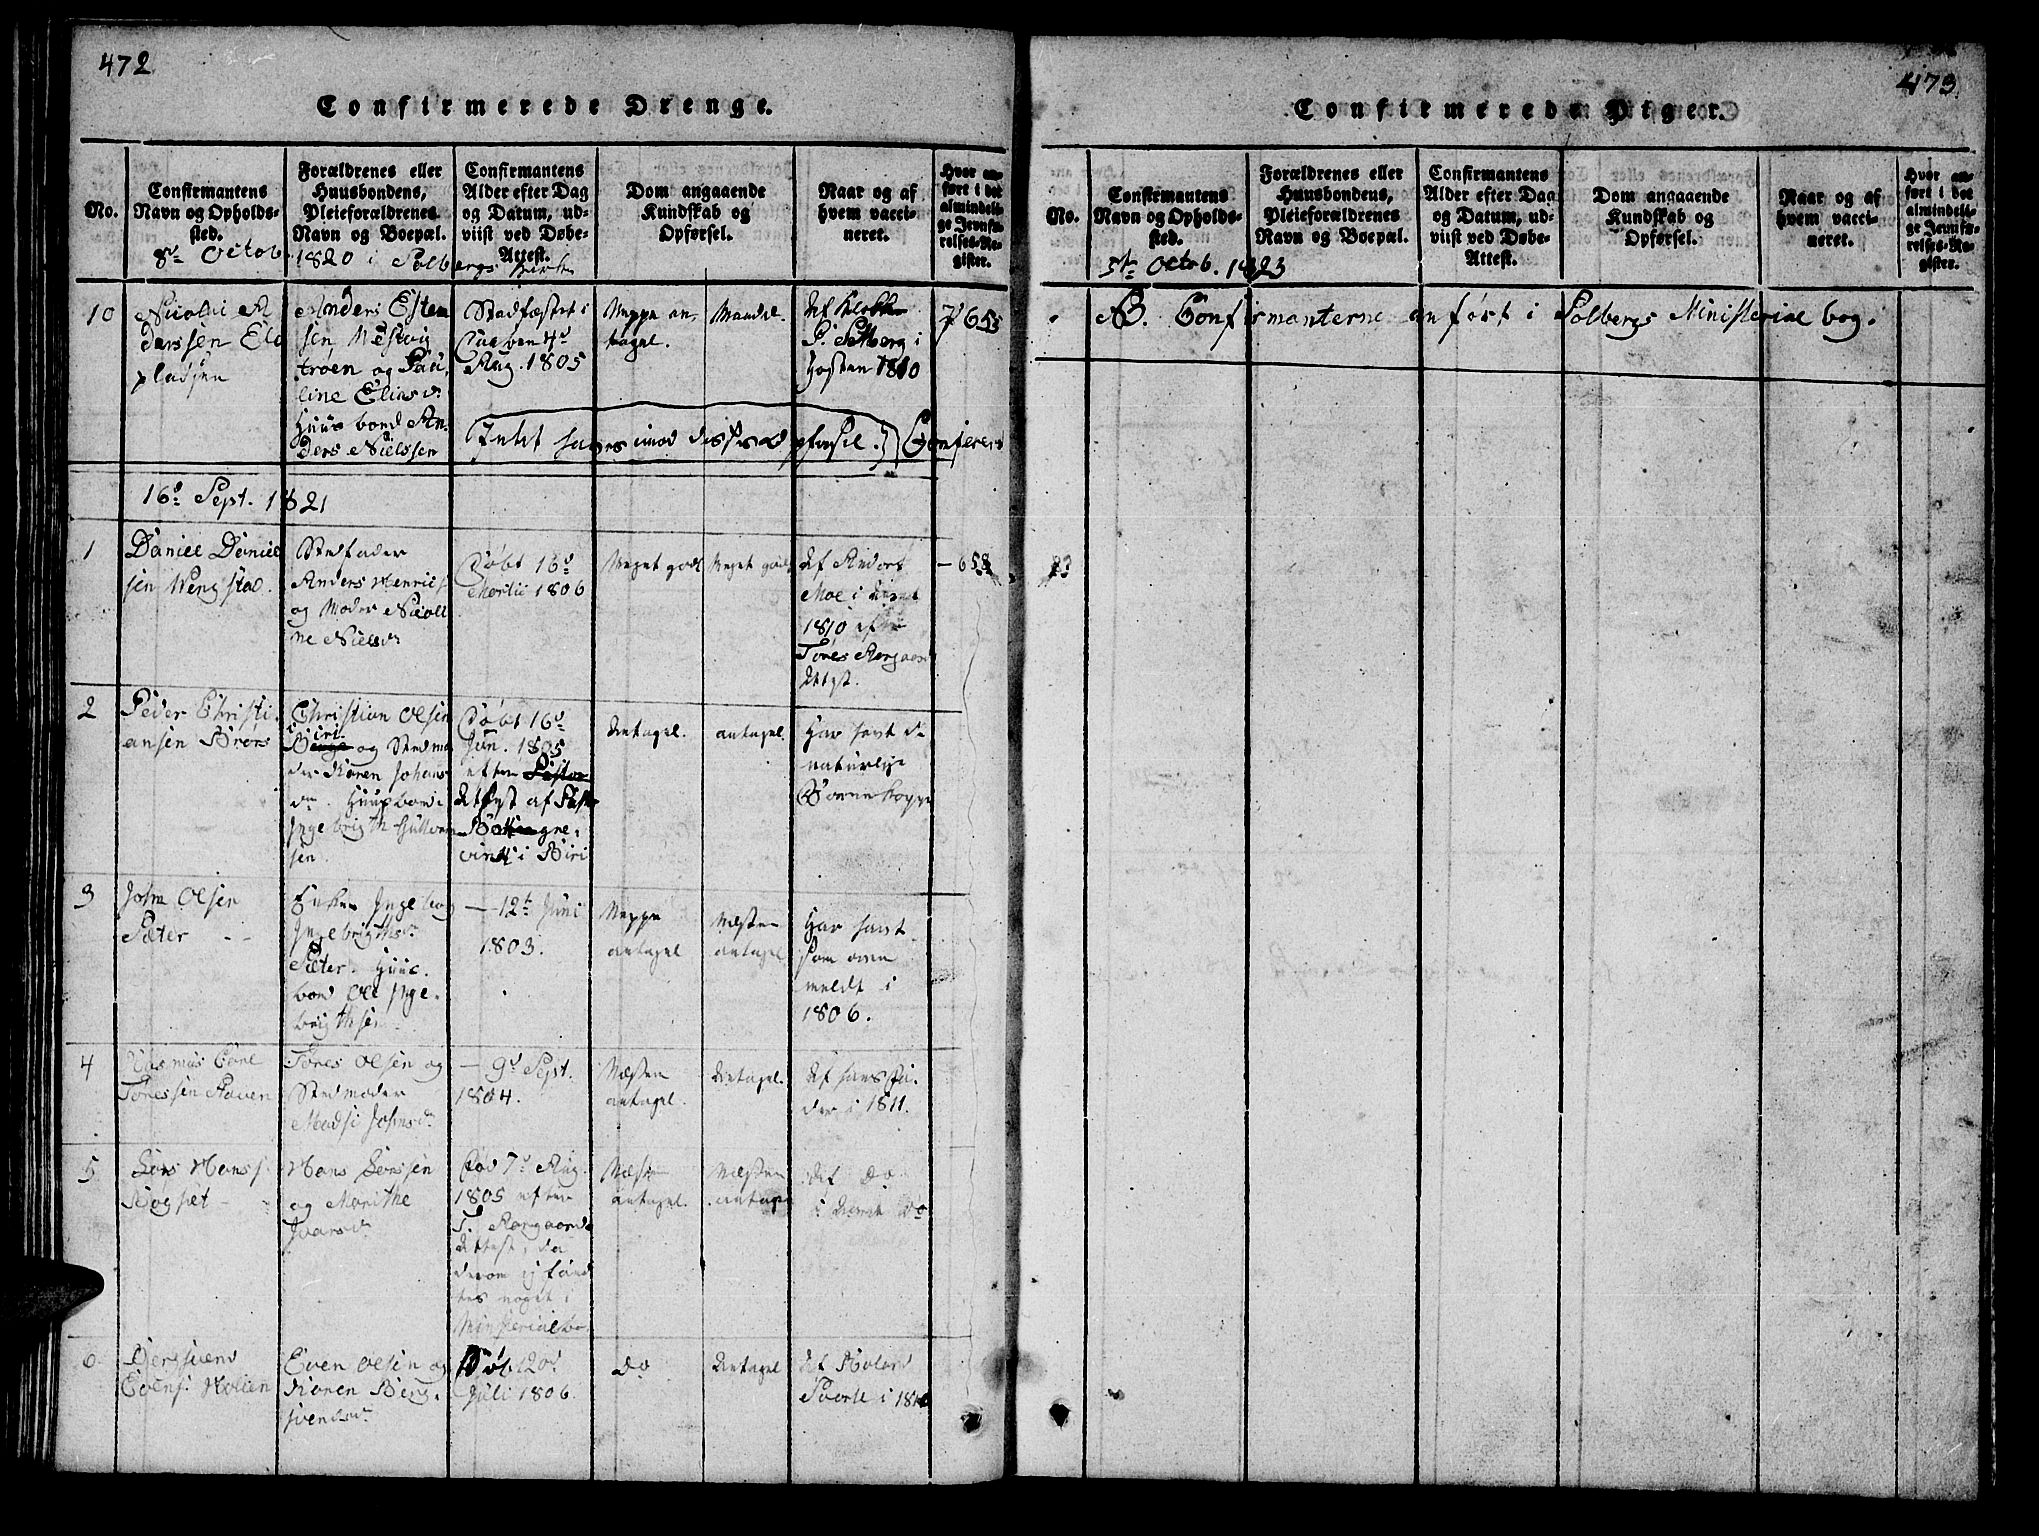 472
Confirmerede Drenge.
No.
Confirmantens
Navn og Opholds-
sted.
Forældrenes eller
Huusbondens,
Pleieforældrenes
Navn og Boepæl.
Confirmantens
Alder efter Dag
og Datum, ud-
viist ved Døbe-
Attest.
Dom angaaende
Kundskab og
Opførsel.
Naar og af
hvem vacci-
neret.
Hvor an-
ført i det
almindeli-
ge Jevnfø-
relses-Re-
gister.
8de Octob. 1820 i Solbergs Kirke
10
Nicolai A
derssen Elv
pladsen
Anders Esten
sen Westvig
trøen og Pau-
line Eliasdr
Huusbond An-
ders Nielssen
Stadfæstet i
Aug. 1805
Neppe an-
tagel.
Maadel.
Af Klokker
P. Setberg i
Høsten 1810
P 655
Intet haves imod dets Opførsel.
Conferers
16d Sept. 1821
1
Daniel Daniel
sen Wengstad.
Stedfader
Anders Henrics
og Moder Nicoli
ne Nielsdr
Døbt 16d
Martii 1806
Meget godt
Meget godt
Af Andors
Moe i
1810 efter
Tores Aargaards
Attest.
- 658
2
Peder Christi-
ansen Brørs
Christian Olsen
i Biri
og Stedmo
der Karen Johans
dr. Huusbond
Ingebrigth
sen.
Døbt 16d
Jun. 1805
efter Pastor
Attest af
i Biri
Antagel.
antagel.
Har havt de
naturlige
Børnekopper
3
John Olsen
Sæter - -
Enken Ingebor
Ingebrigthsdr
Sæter. Huus-
bond Ole Inge-
brigthsen
- 12te Juni
1803.
Neppe
antagel
Næsten
antagel
Har havt
som oven
meldt i
1806.
4
Rasmus Edvе
Toressen Staven
Tores Olsen og
Stedmoder
Madsi Johnsdr
- 9d Sept.
1804.
Næsten
antagel.
Antagel.
Af hans Fa-
der i 1811.
5
Lars Hanss.
Bogset -
Hans Larssen
og Marithe
Ivarsdr
Fød 7d Aug.
1805 efter
T. Aargaards
Attest, da
derom ej fand
tes noget i
Ministerialbo.
Næsten
antagel.
Næsten
antagel
Af Do
i Do
6
Bergsvend
Evens. Molien
Even Olsen og
Karen Berg-
svendsdr
Døbt 20d
Juli 1806.
do
Antagel
Af Roland
Svorte i 1810
473
Confirmerede Piger.
No.
Confirmantens
Navn og Opholds-
sted.
Forældrenes eller
Huusbondens,
Pleieforældrenes
Navn og Boepæl.
Confirmantens
Alder efter Dag
og Datum, ud-
viist ved Døbe-
Attest.
Dom angaaende
Kundskab og
Opførsel.
Naar og af
hvem vacci-
neret.
Hvor an-
ført i det
almindeli-
ge Jevnfø-
relses-Re-
gister.
5te Octob. 1823
NB. Confirmanterne anført i Solbergs Ministerial bog.